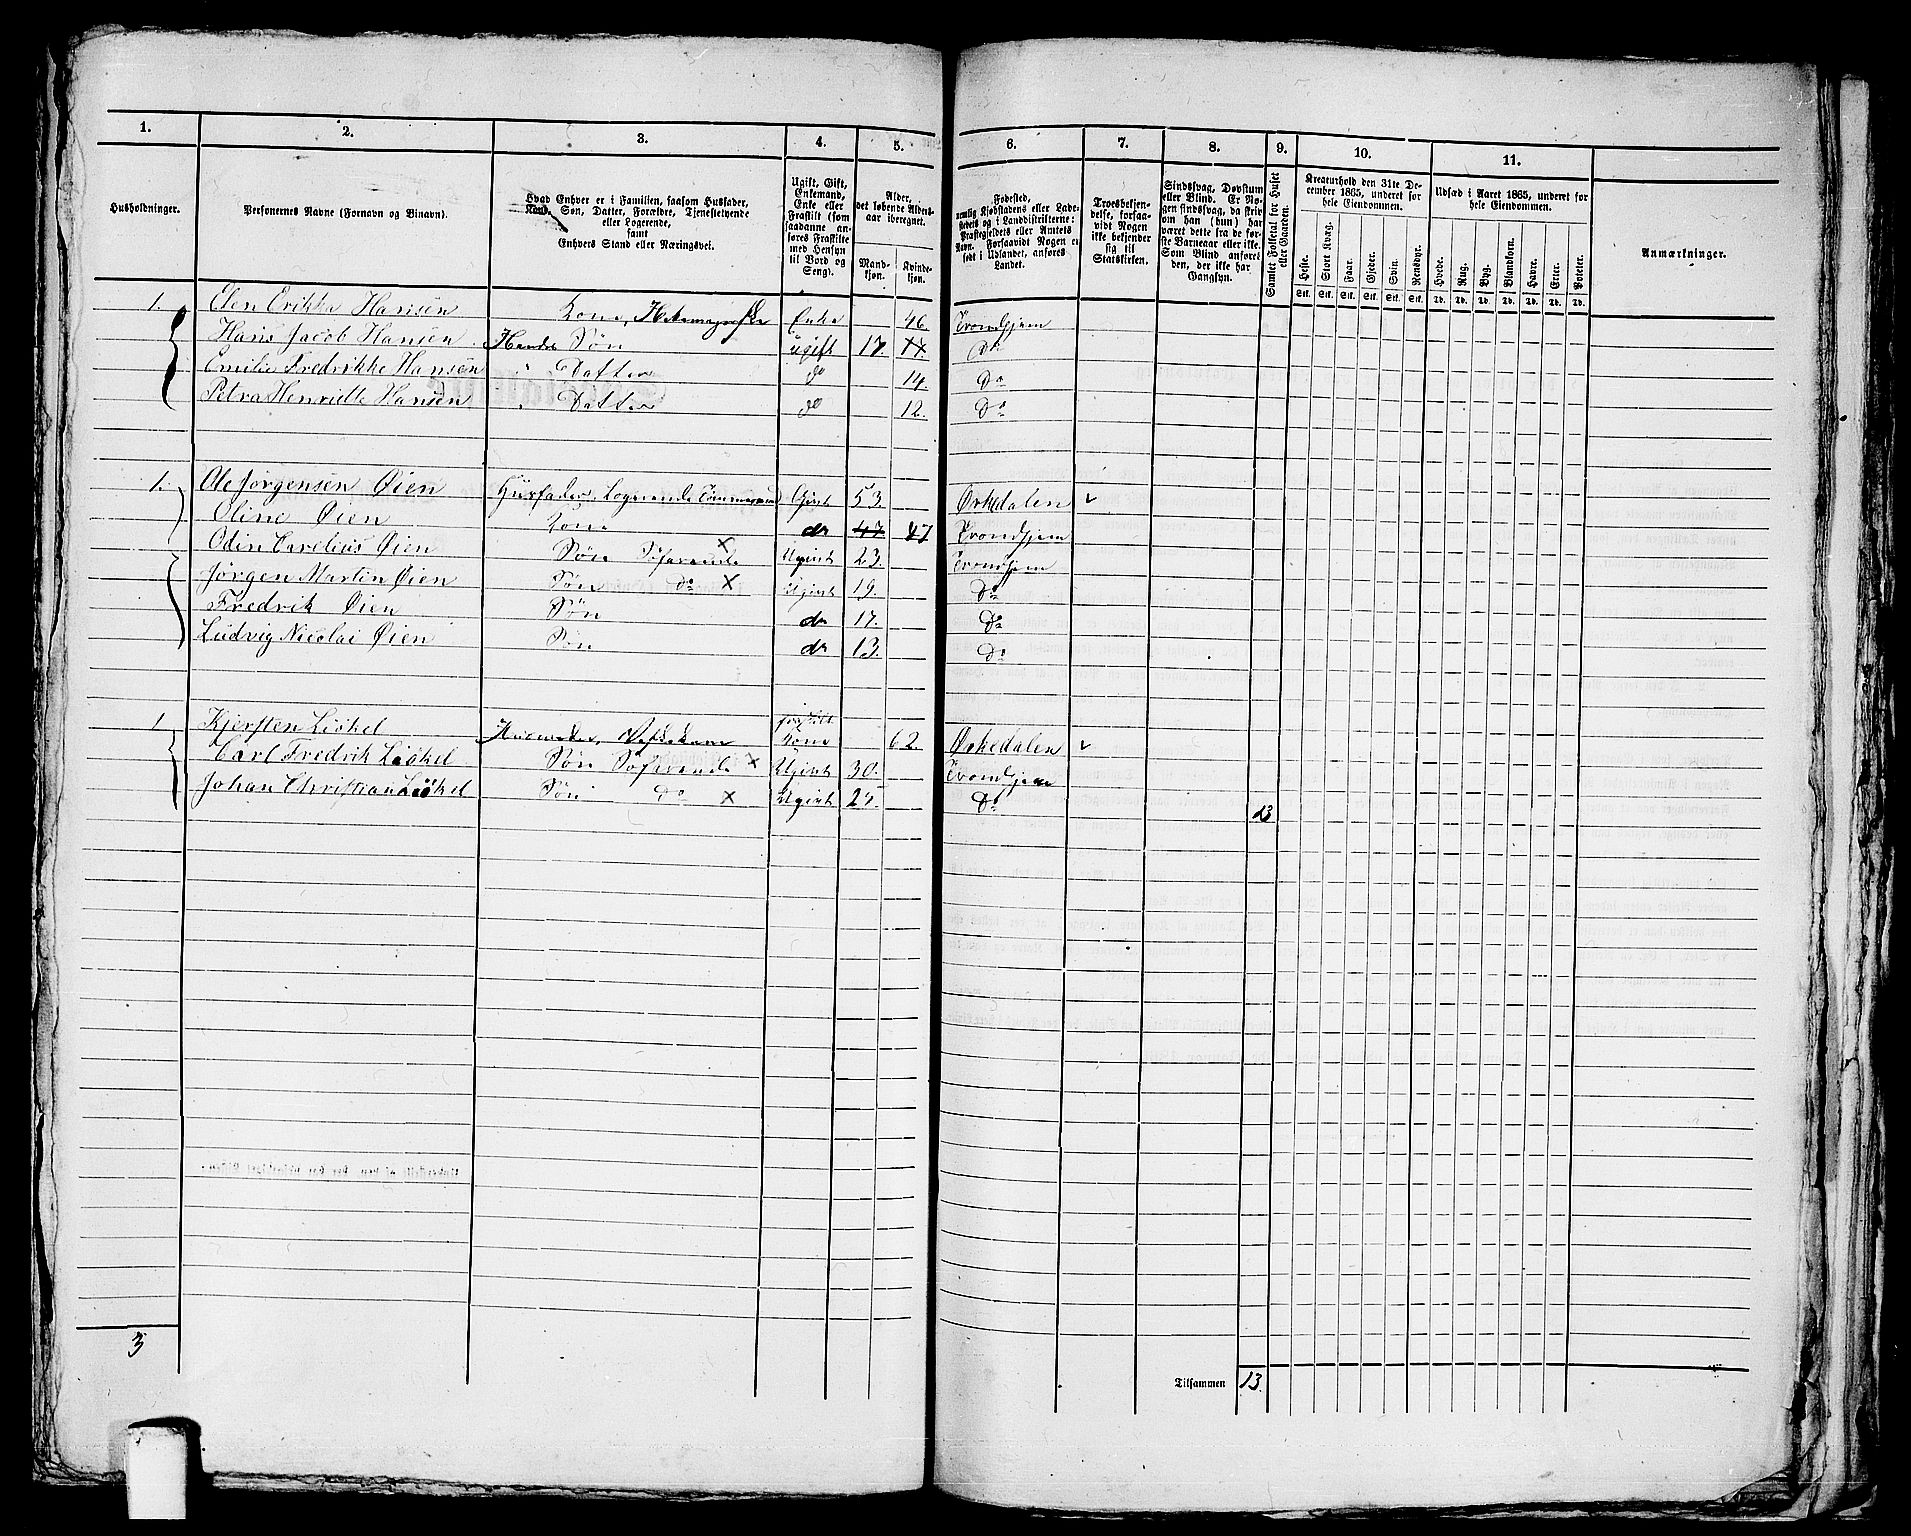 1. 2. 3. 4. 5. 6. 7. 8. 9. 10. 11.
Husholdninger.
Personernes Navne (Fornavn og Binavn).
Hvad Enhver er i Familien, saasom Husfader,
Kone, Søn, Datter, Forældre, Tjenestetyende
eller Logerende,
samt
Enhvers Stand eller Næringsvei.
Ugift, Gift,
Enkemand,
Enke eller
Fraskilt (som
saadanne an-
føres Fraskilte
med Hensyn
til Bord og
Seng).
Alder,
det løbende Alders-
aar iberegnet.
Mand-
kjøn.
Kvinde-
kjøn.
Fødested,
nemlig Kjøbstadens eller Lade-
stedets og i Landdistrikterne:
Præstegjeldets eller Amtets
Navn. Forsaavidt Nogen er
født i Udlandet, anføres
Landet.
Troesbekjen-
delse, forsaa-
vidt Nogen
ikke bekjender
sig til
Statskirken.
Sindssvag, Døvstum
eller Blind. Er No-
gen sindssvag, da skriv
om han (hun) har
været dette fra de før-
ste Barneaar eller ikke.
Som Blind anføres
den, der ikke har
Gangsyn.
Samlet Folketal for Huset
eller Gaarden.
Kreaturhold den 31te De-
cember 1865, underet for
hele Eiendommen.
Heste. Stort Kvæg. Faar. Gjeder. Svin. Rensdyr.
Stk. Stk. Stk. Stk. Stk. Stk.
Udsæd i Aaret 1865, underet for
hele Eiendommen.
Hvede. Rug. Byg. Blandkorn. Havre. Erter. Poteter.
Td. Td. Td. Td. Td. Td. Td.
Anmærkninger.
1. Elen Erikka Hansen Kone, Enke 46. Trondhjem
Hans Jacob Hansen Søn ugift 17 17 Do
Emilie Fredrikke Hansen " Datter do 14. Do
Petra Henriette Hansen " Datter do 12. Do
1. Ole Jørgensen Øien Husfader, Logerende Tømmermand Givt 53. Ørkedalen
Oline Øien Kone do 47 47 Trondhjem
Odin Carelius Øien Søn Søfarende x Ugivt 23. Trondhjem
Jørgen Martin Øien Søn Do x Ugivt 19. Do
Fredrik Øien Søn do 17. Do
Ludvig Nicolai Øien Søn do 13. Do
1 Kjersten Löökel Kone 62. Ørkedalen
Carl Fredrik Löökel Søn Søfarende x Ugivt 30. Trondhjem
Johan Christian Löökel Søn Do x Ugivt 25. Do 13
3
Tilsammen 13.